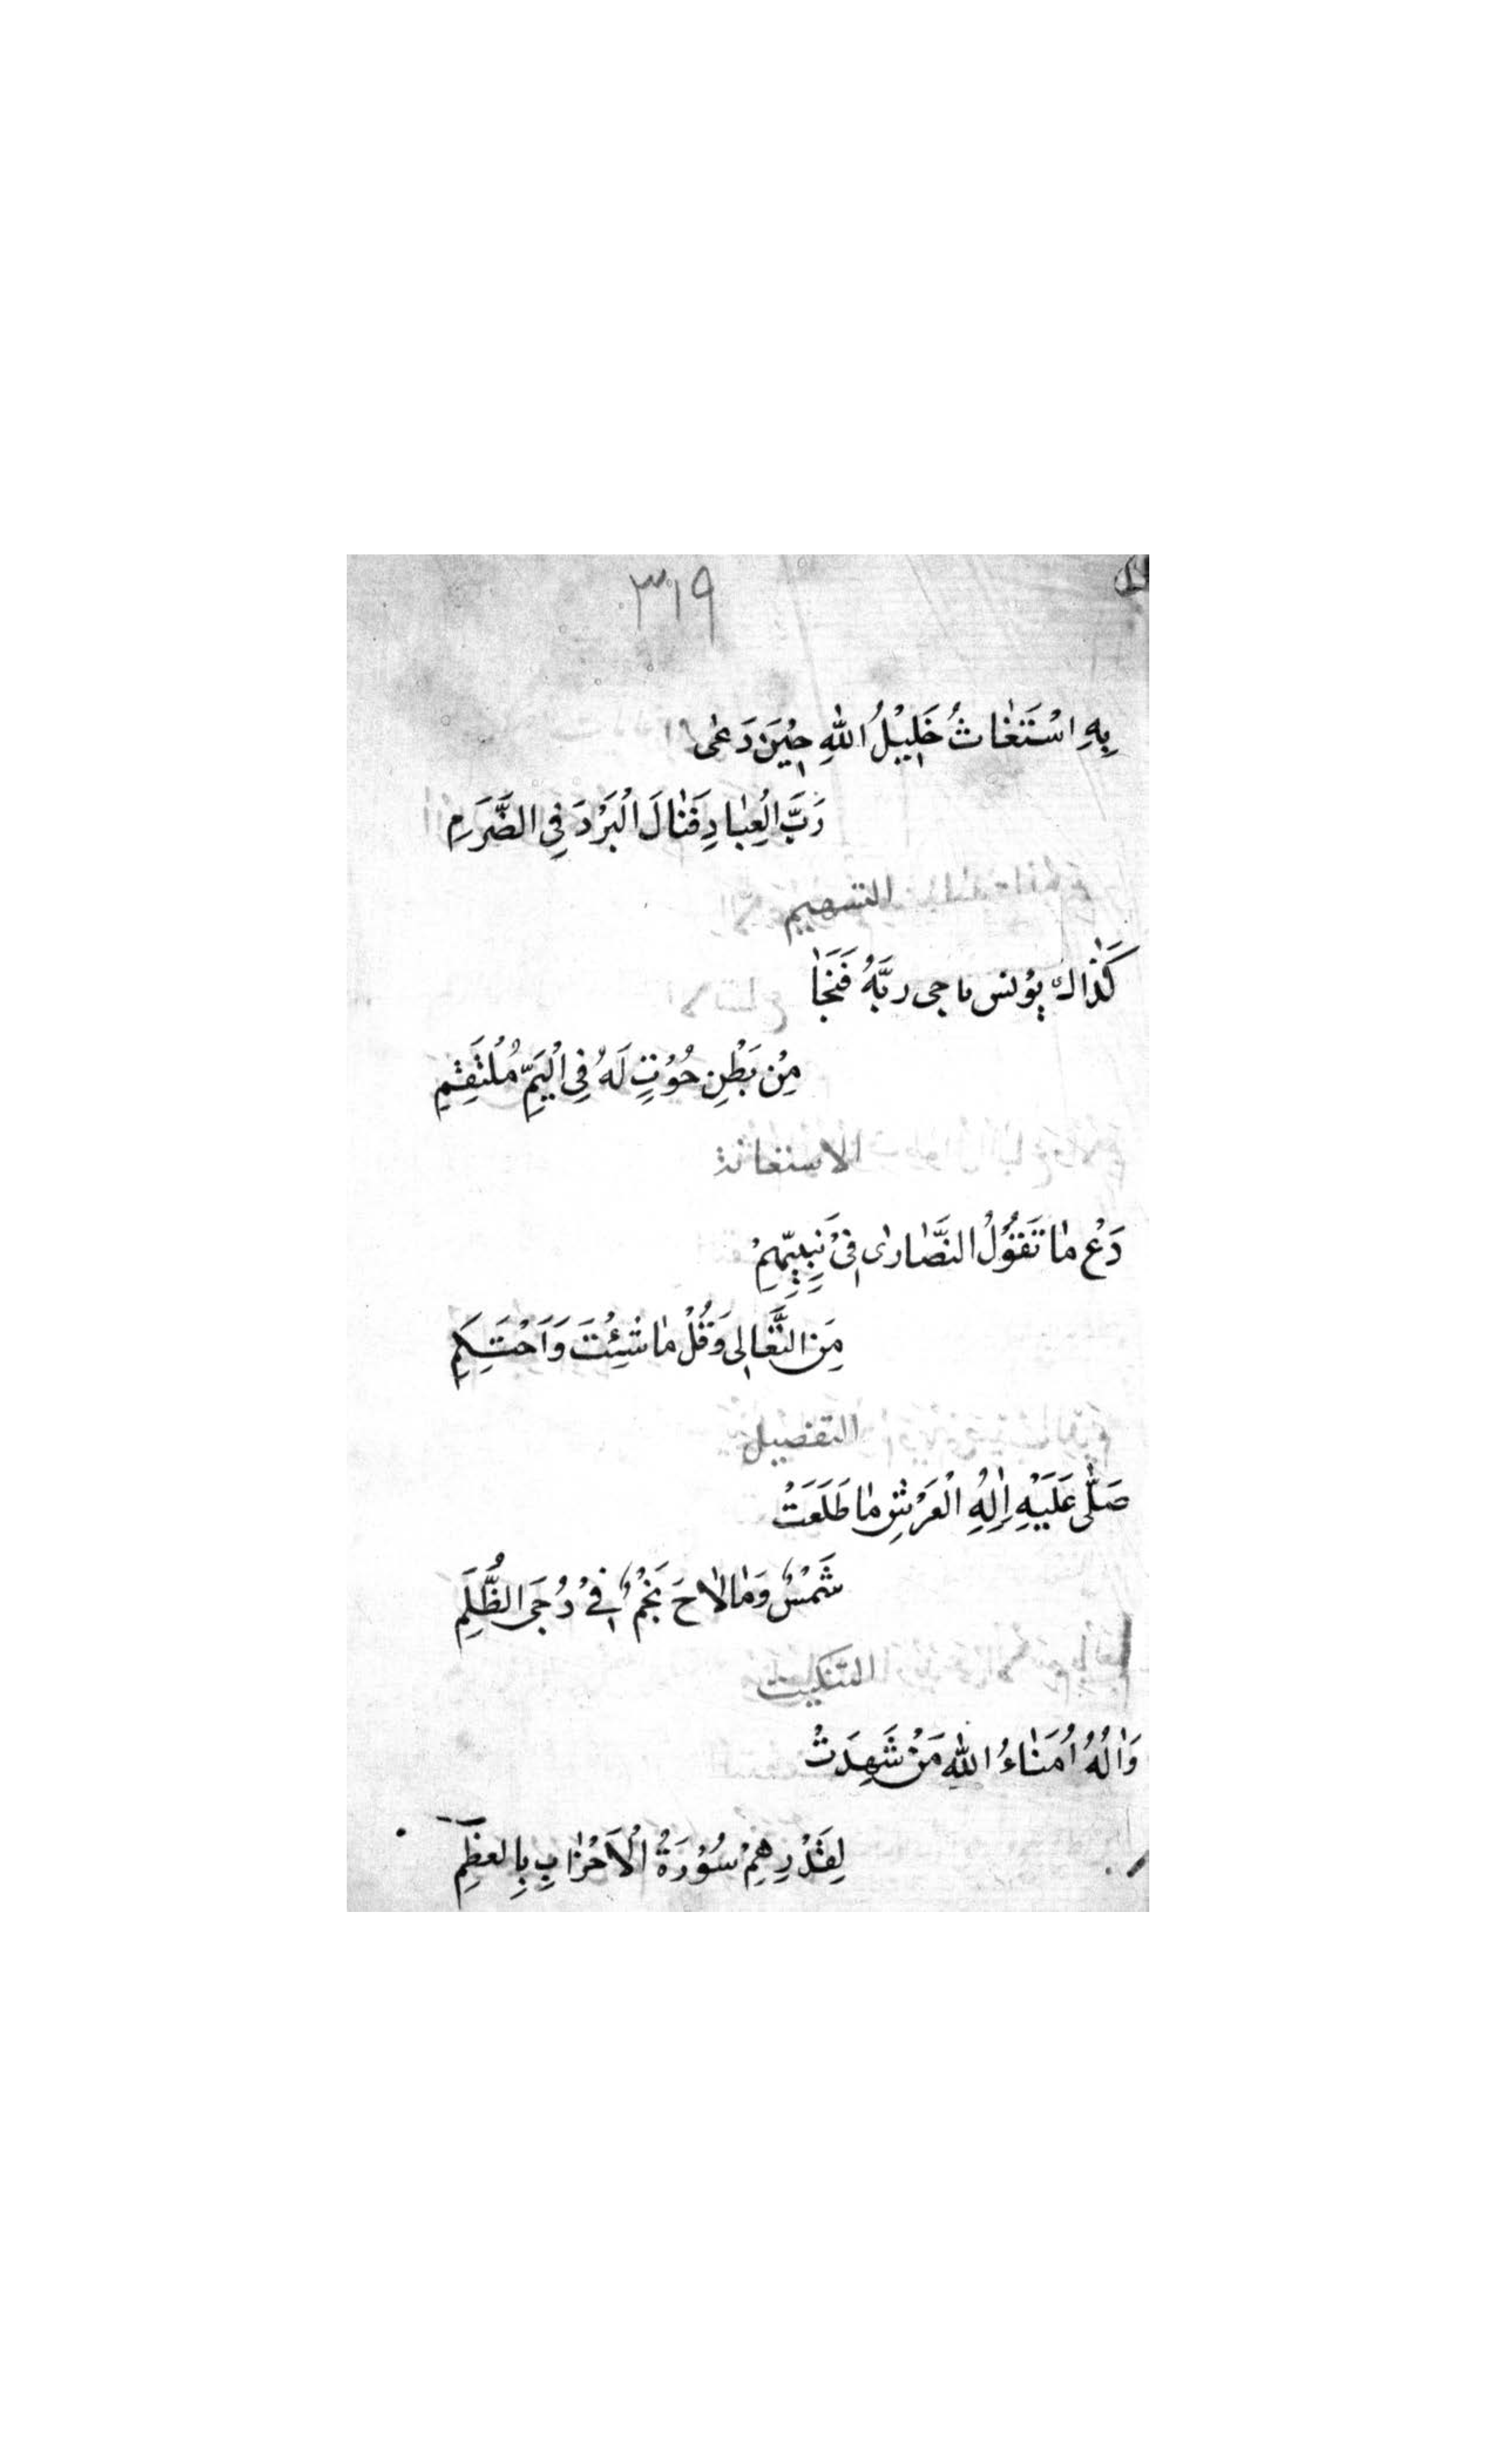 ٣١٩
بِهِ اسْتَغَاثُ خَلِيْلُ اللهِ حِيْنَ دَعٰى
رَبَّ الْعِبٰادِ فَنٰالَ الْبَرْدَ فِي الضَّرَمِ
التسهيم
كَذٰاك يُونس ناجى ربَّهُ فَنَجٰا
مِنْ بَطْنِ حُوْتٍ لَهُ فِي الْيَمِّ مُلْتَقِمِ
الاستعانة
دَعْ مٰا تَقُوْلُ النَّصٰارىٰ فِىْ نَبِيِّهِمْ
مِنَ التَّغَالِى وَقُلْ مٰا شِئْتَ وَاَحْتَكِمِ
التفضيل
صَلّٰى عَلَيْهِ إِلٰهُ الْعَرْشِ مٰا طَلَعَتْ
شَمْسٌ وَمٰا لٰاحَ نَجْمٌ فِىْ دُجَى الظُّلَمِ
التنكيت
وَاٰلُهُ اُمَنٰاءُ اللهِ مَنْ شَهِدَتْ
لِقَدْرِهِمْ سُوْرَةُ الْاَحْزٰابِ بِالعظَمِ